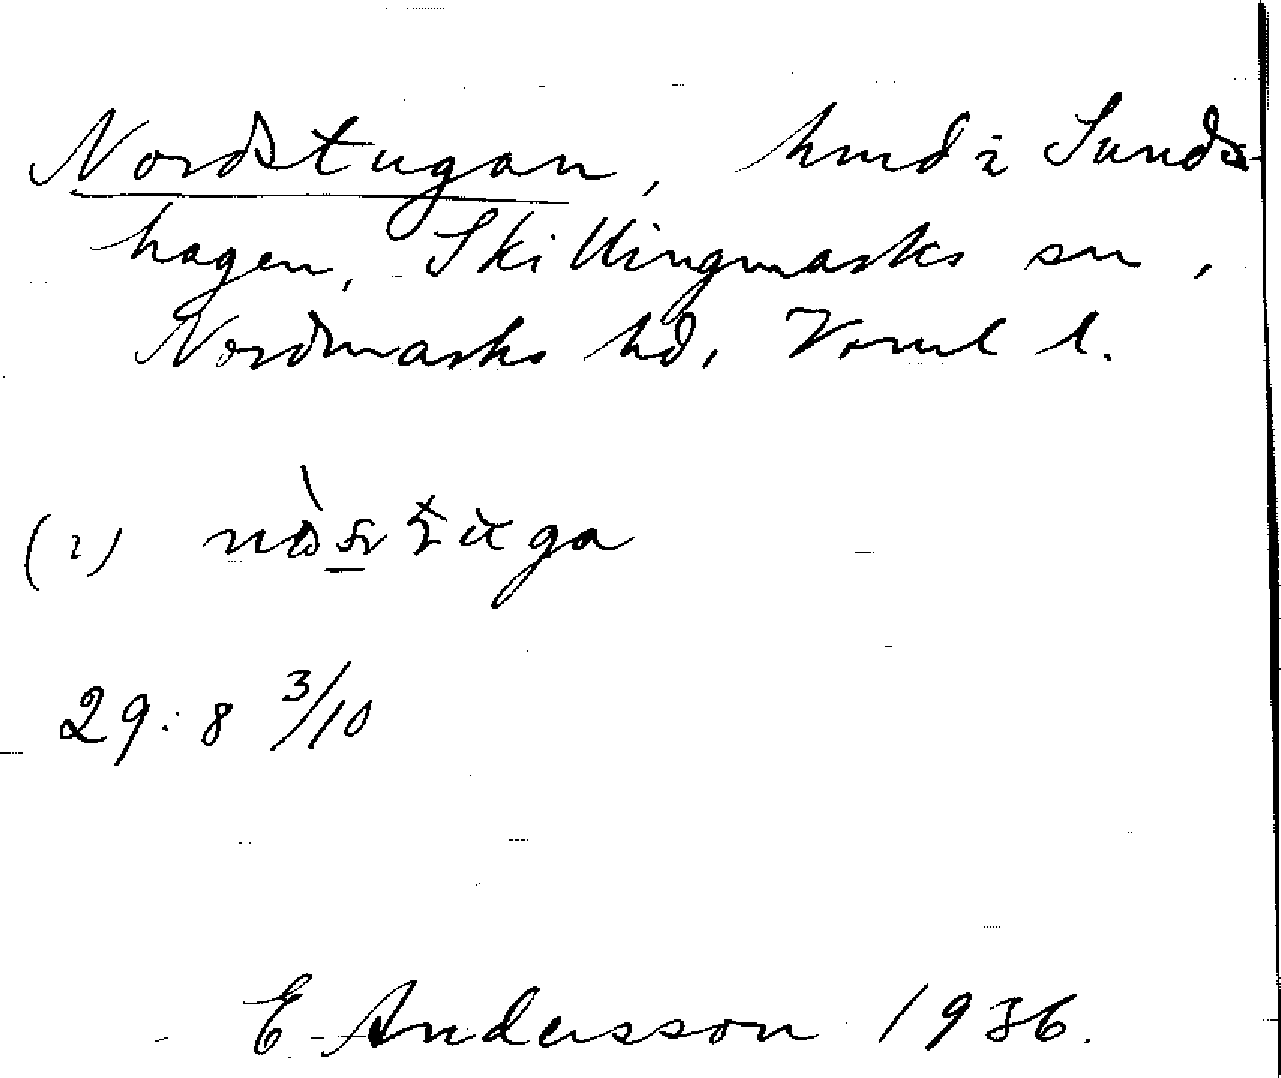 Nordstugan, hmd i Sunds-
hagen, Skillingmarks sn,
Nordmarks hd, Värml l.
(i)
29:8 3/10
E Andersson 1936.